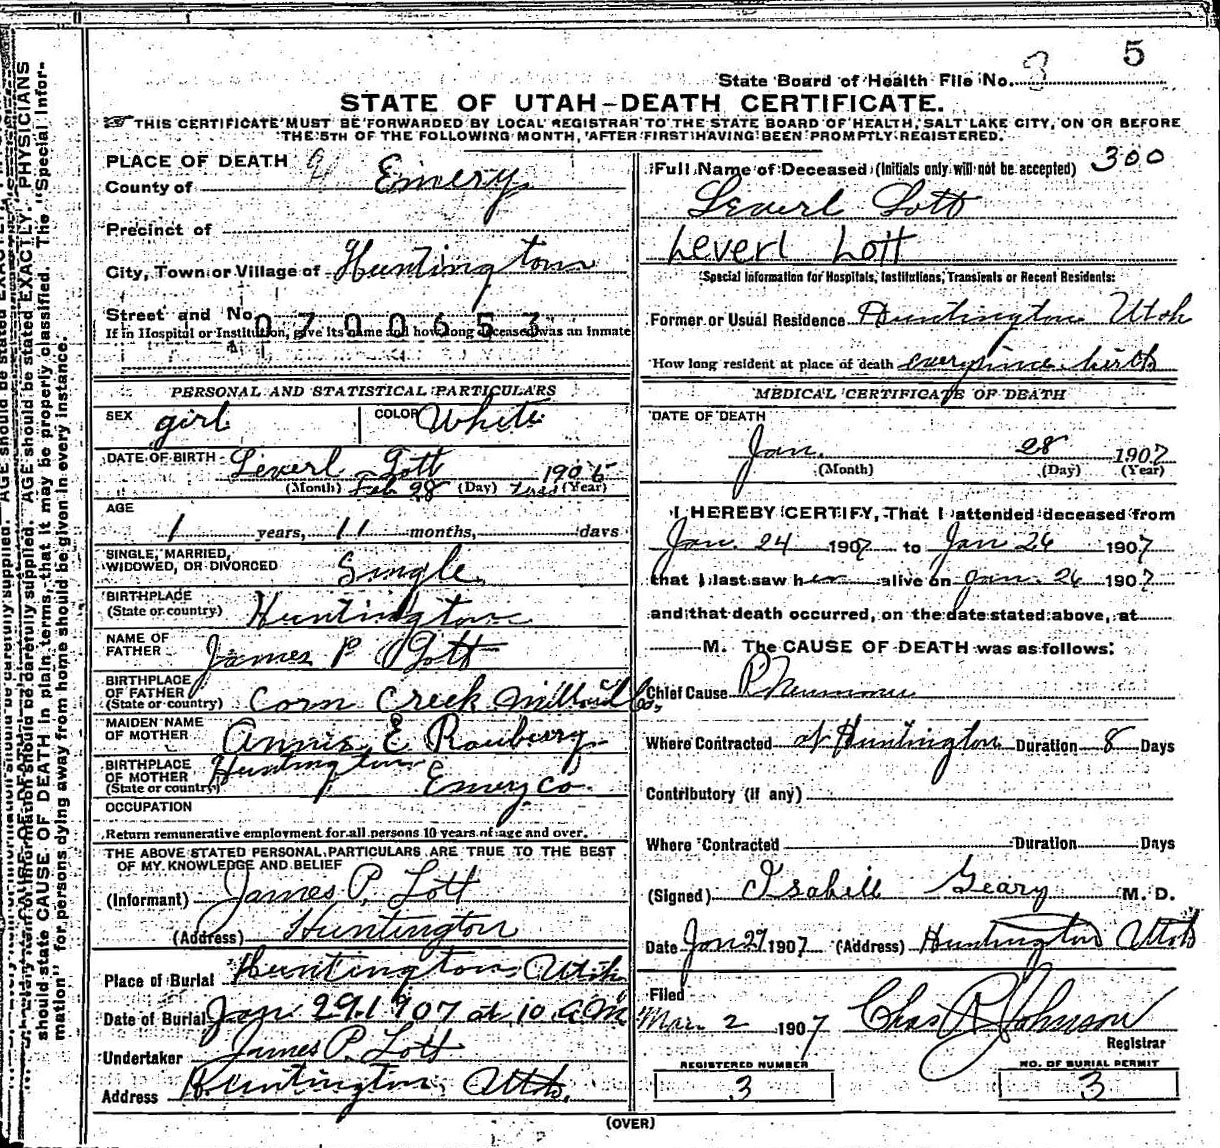 5
State Board of Health File No. 3
STATE OF UTAH–DEATH CERTIFICATE.
THIS CERTIFICATE MUST BE FORWARDED BY LOCAL REGISTRAR TO THE STATE BOARD OF HEALTH, SALT LAKE CITY, ON OR BEFORE
THE 5TH OF THE FOLLOWING MONTH, AFTER FIRST HAVING BEEN PROMPTLY REGISTERED.
PLACE OF DEATH
County of Emery
Precinct of
City, Town or Village of Huntington
Street and No.
0700653
If in Hospital or Institution, give its name and how long deceased was an inmate
PERSONAL AND STATISTICAL PARTICULARS
SEX girl COLOR White
DATE OF BIRTH Leverl Lott
(Month) Feb 28 (Day) (Year)
AGE
1 years, 11 months, days
SINGLE, MARRIED,
WIDOWED, OR DIVORCED Single
BIRTHPLACE
(State or country) Huntington
NAME OF
FATHER James P Lott
BIRTHPLACE
OF FATHER
(State or country) Corn Creek
MAIDEN NAME
OF MOTHER E
BIRTHPLACE
OF MOTHER
(State or country) Huntington
Emery Co.
OCCUPATION
Return remunerative employment for all persons 10 years of age and over.
THE ABOVE STATED PERSONAL PARTICULARS ARE TRUE TO THE BEST
OF MY KNOWLEDGE AND BELIEF
(Informant) James P. Lott
(Address) Huntington
Place of Burial Huntington Utah
Date of Burial Jan 29 1907 at 10 A.M
Undertaker James P. Lott
Address Huntington, Utah.
Full Name of Deceased (Initials only will not be accepted) 300
Leverl Lott
Leverl Lott
Special Information for Hospitals, Institutions, Transients or Recent Residents:
Former or Usual Residence Huntington Utah
How long resident at place of death ever since birth
MEDICAL CERTIFICATE OF DEATH
DATE OF DEATH
Jan. 28 1907
(Month) (Day) (Year)
I HEREBY CERTIFY, That I attended deceased from
Jan. 24 1907 to Jan 26 1907
that I last saw her alive on Jan. 26 1907
and that death occurred, on the date stated above, at
M. The CAUSE OF DEATH was as follows:
Chief Cause Pneumonia
Where Contracted at Huntington Duration 8 Days
Contributory (if any)
Where Contracted Duration Days
(Signed) Isabill Geary M. D.
Date Jan 29 1907 (Address) Huntington Utah
Filed
Mar. 2 1907 Chas P. Johnson
Registrar
REGISTERED NUMBER
3
NO. OF BURIAL PERMIT
3
(OVER)
AGE should be stated EXACTLY. PHYSICIANS
should state CAUSE OF DEATH in plain terms, that it may be properly classified. The "Special Infor-
mation" for persons dying away from home should be given in every instance.